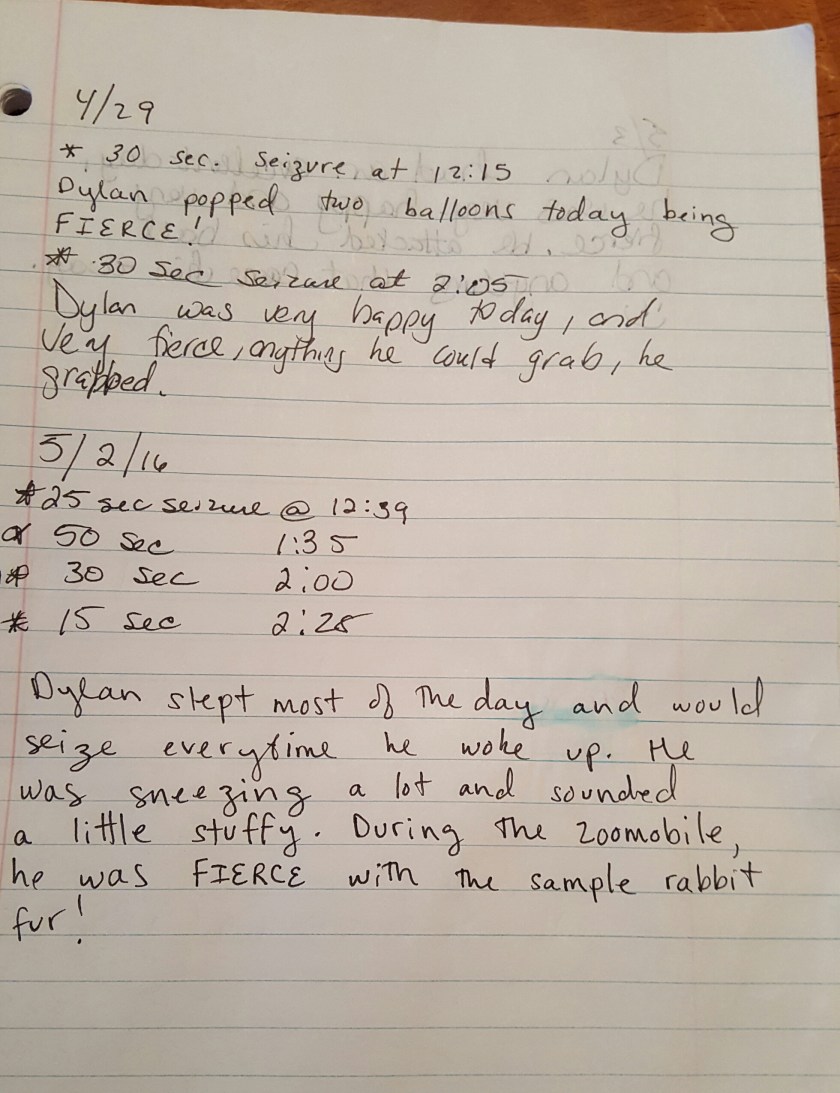 4/29
* 30 sec. seizure at 12:15
Dylan popped two balloons today being
FIERCE!
* 30 sec seizure at 2:05
Dylan was very happy today, and
very fierce, anything he could grab, he
grabbed.
5/2/16
* 25 sec seizure @ 12:39
* 50 sec 1:35
* 30 sec 2:00
* 15 sec 2:25
Dylan slept most of the day and would
seize everytime he woke up. He
was sneezing a lot and sounded
a little stuffy. During the zoomobile,
he was FIERCE with the sample rabbit
fur!